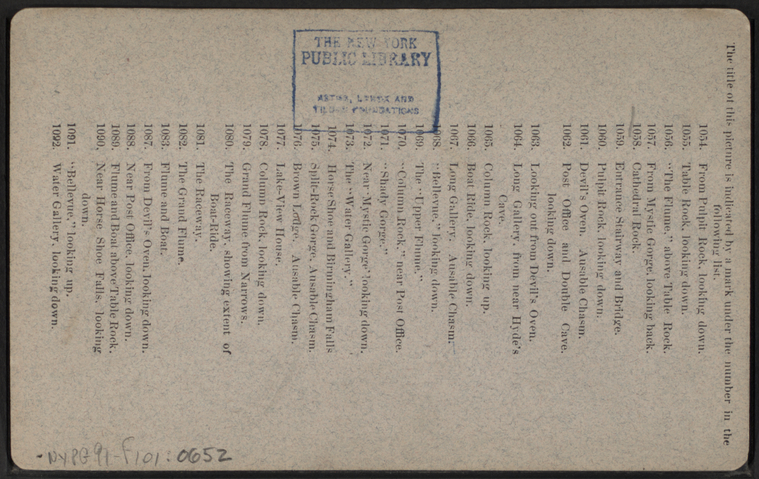 The title of this picture is indicated by a mark under the number in the
following list.
1054. From Pulpit Rock, looking down.
1055. Table Rock, looking down.
1056. "The Flume," above Table Rock.
1057. From Mystic Gorge, looking back.
1058. Cathedral Rock.
1059. Entrance Stairway and Bridge.
1060. Pulpit Rock, looking down.
1061. Devil's Oven, Ausable Chasm.
1062. Post Office and Double Cave,
looking down.
1063. Looking out from Devil's Oven.
1064. Long Gallery, from near Hyde's
Cave.
1065. Column Rock, looking up.
1066. Boat Ride, looking down.
1067. Long Gallery, Ausable Chasm.
1068. "Bellevue," looking down.
1069. The "Upper Flume."
1070. "Column Rock," near Post Office.
1071. "Shady Gorge."
1072. Near "Mystic Gorge" looking down.
1073. The "Water Gallery."
1074. Horse Shoe and Birmingham Falls
1075. Split-Rock Gorge, Ausable Chasm.
1076. Brown Ledge, Ausable Chasm.
1077. Lake-View House.
1078. Column Rock, looking down.
1079. Grand Flume from Narrows.
1080. The Raceway, showing extent of
Boat-Ride.
1081. The Raceway.
1082. The Grand Flume.
1083. Flume and Boat.
1087. From Devil's Oven, looking down.
1088. Near Post Office, looking down.
1089. Flume and Boat above Table Rock.
1090. Near Horse Shoe Falls, looking
down.
1091. "Bellevue," looking up.
1092. Water Gallery, looking down.
THE NEW YORK
PUBLIC LIBRARY
ASTOR, LENOX AND
TILDEN FOUNDATIONS
NYPG91-F101:0652